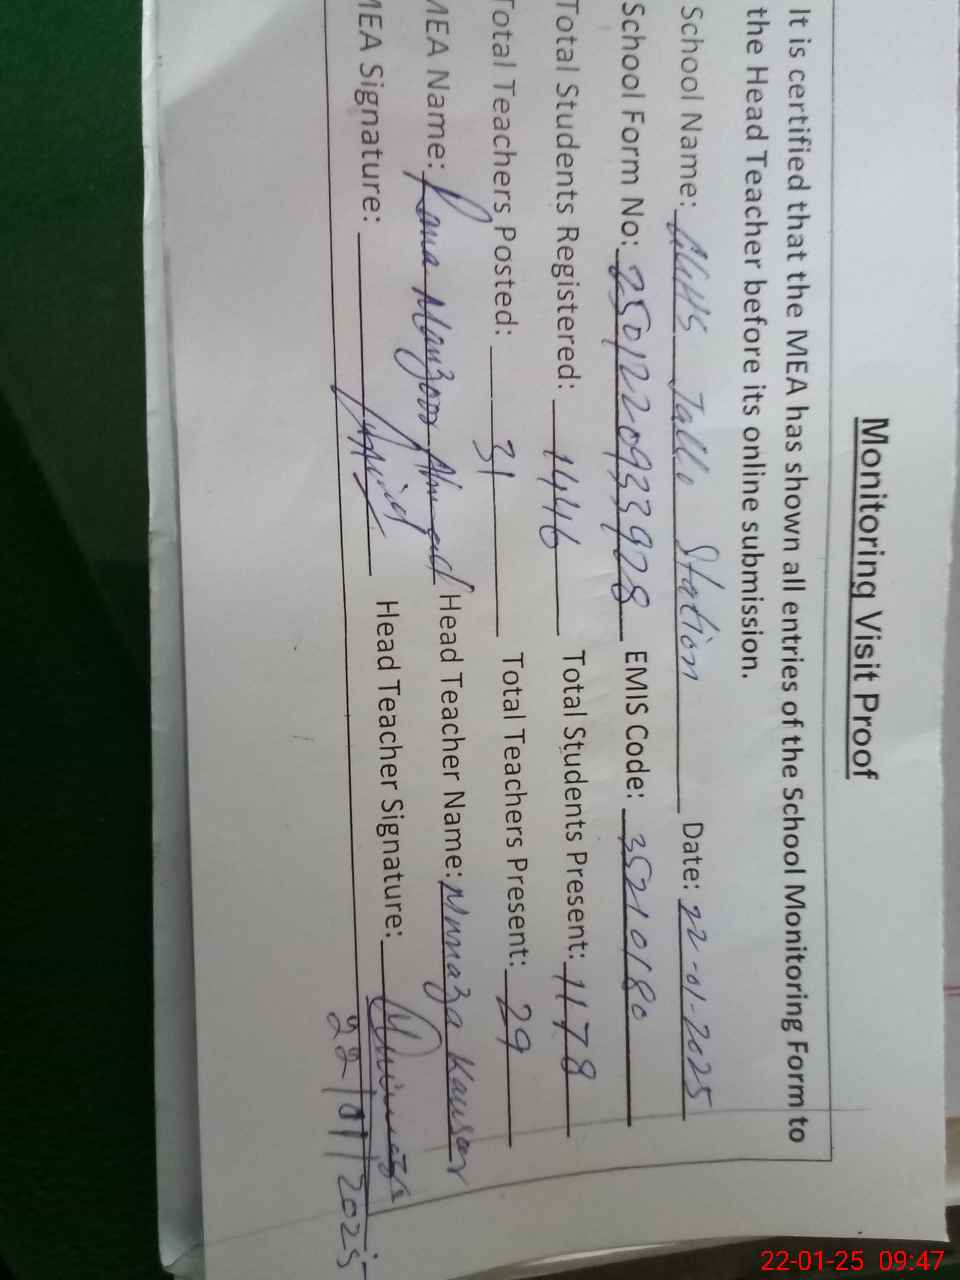 Monitoring Visit Proof
It is certified that the MEA has shown all entries of the School Monitoring Form to
the Head Teacher before its online submission.
School Name: GGHS Jallo Station Date: 22-01-2025
School Form No: 2501220933928 EMIS Code: 35210180
Total Students Registered: 1446 Total Students Present: 1178
Total Teachers Posted: 31 Total Teachers Present: 29
MEA Name: Rana Manzoor Ahmed Head Teacher Name: Munaza Kausar
MEA Signature: Head Teacher Signature:
22/01/2025
22-01-25 09:47